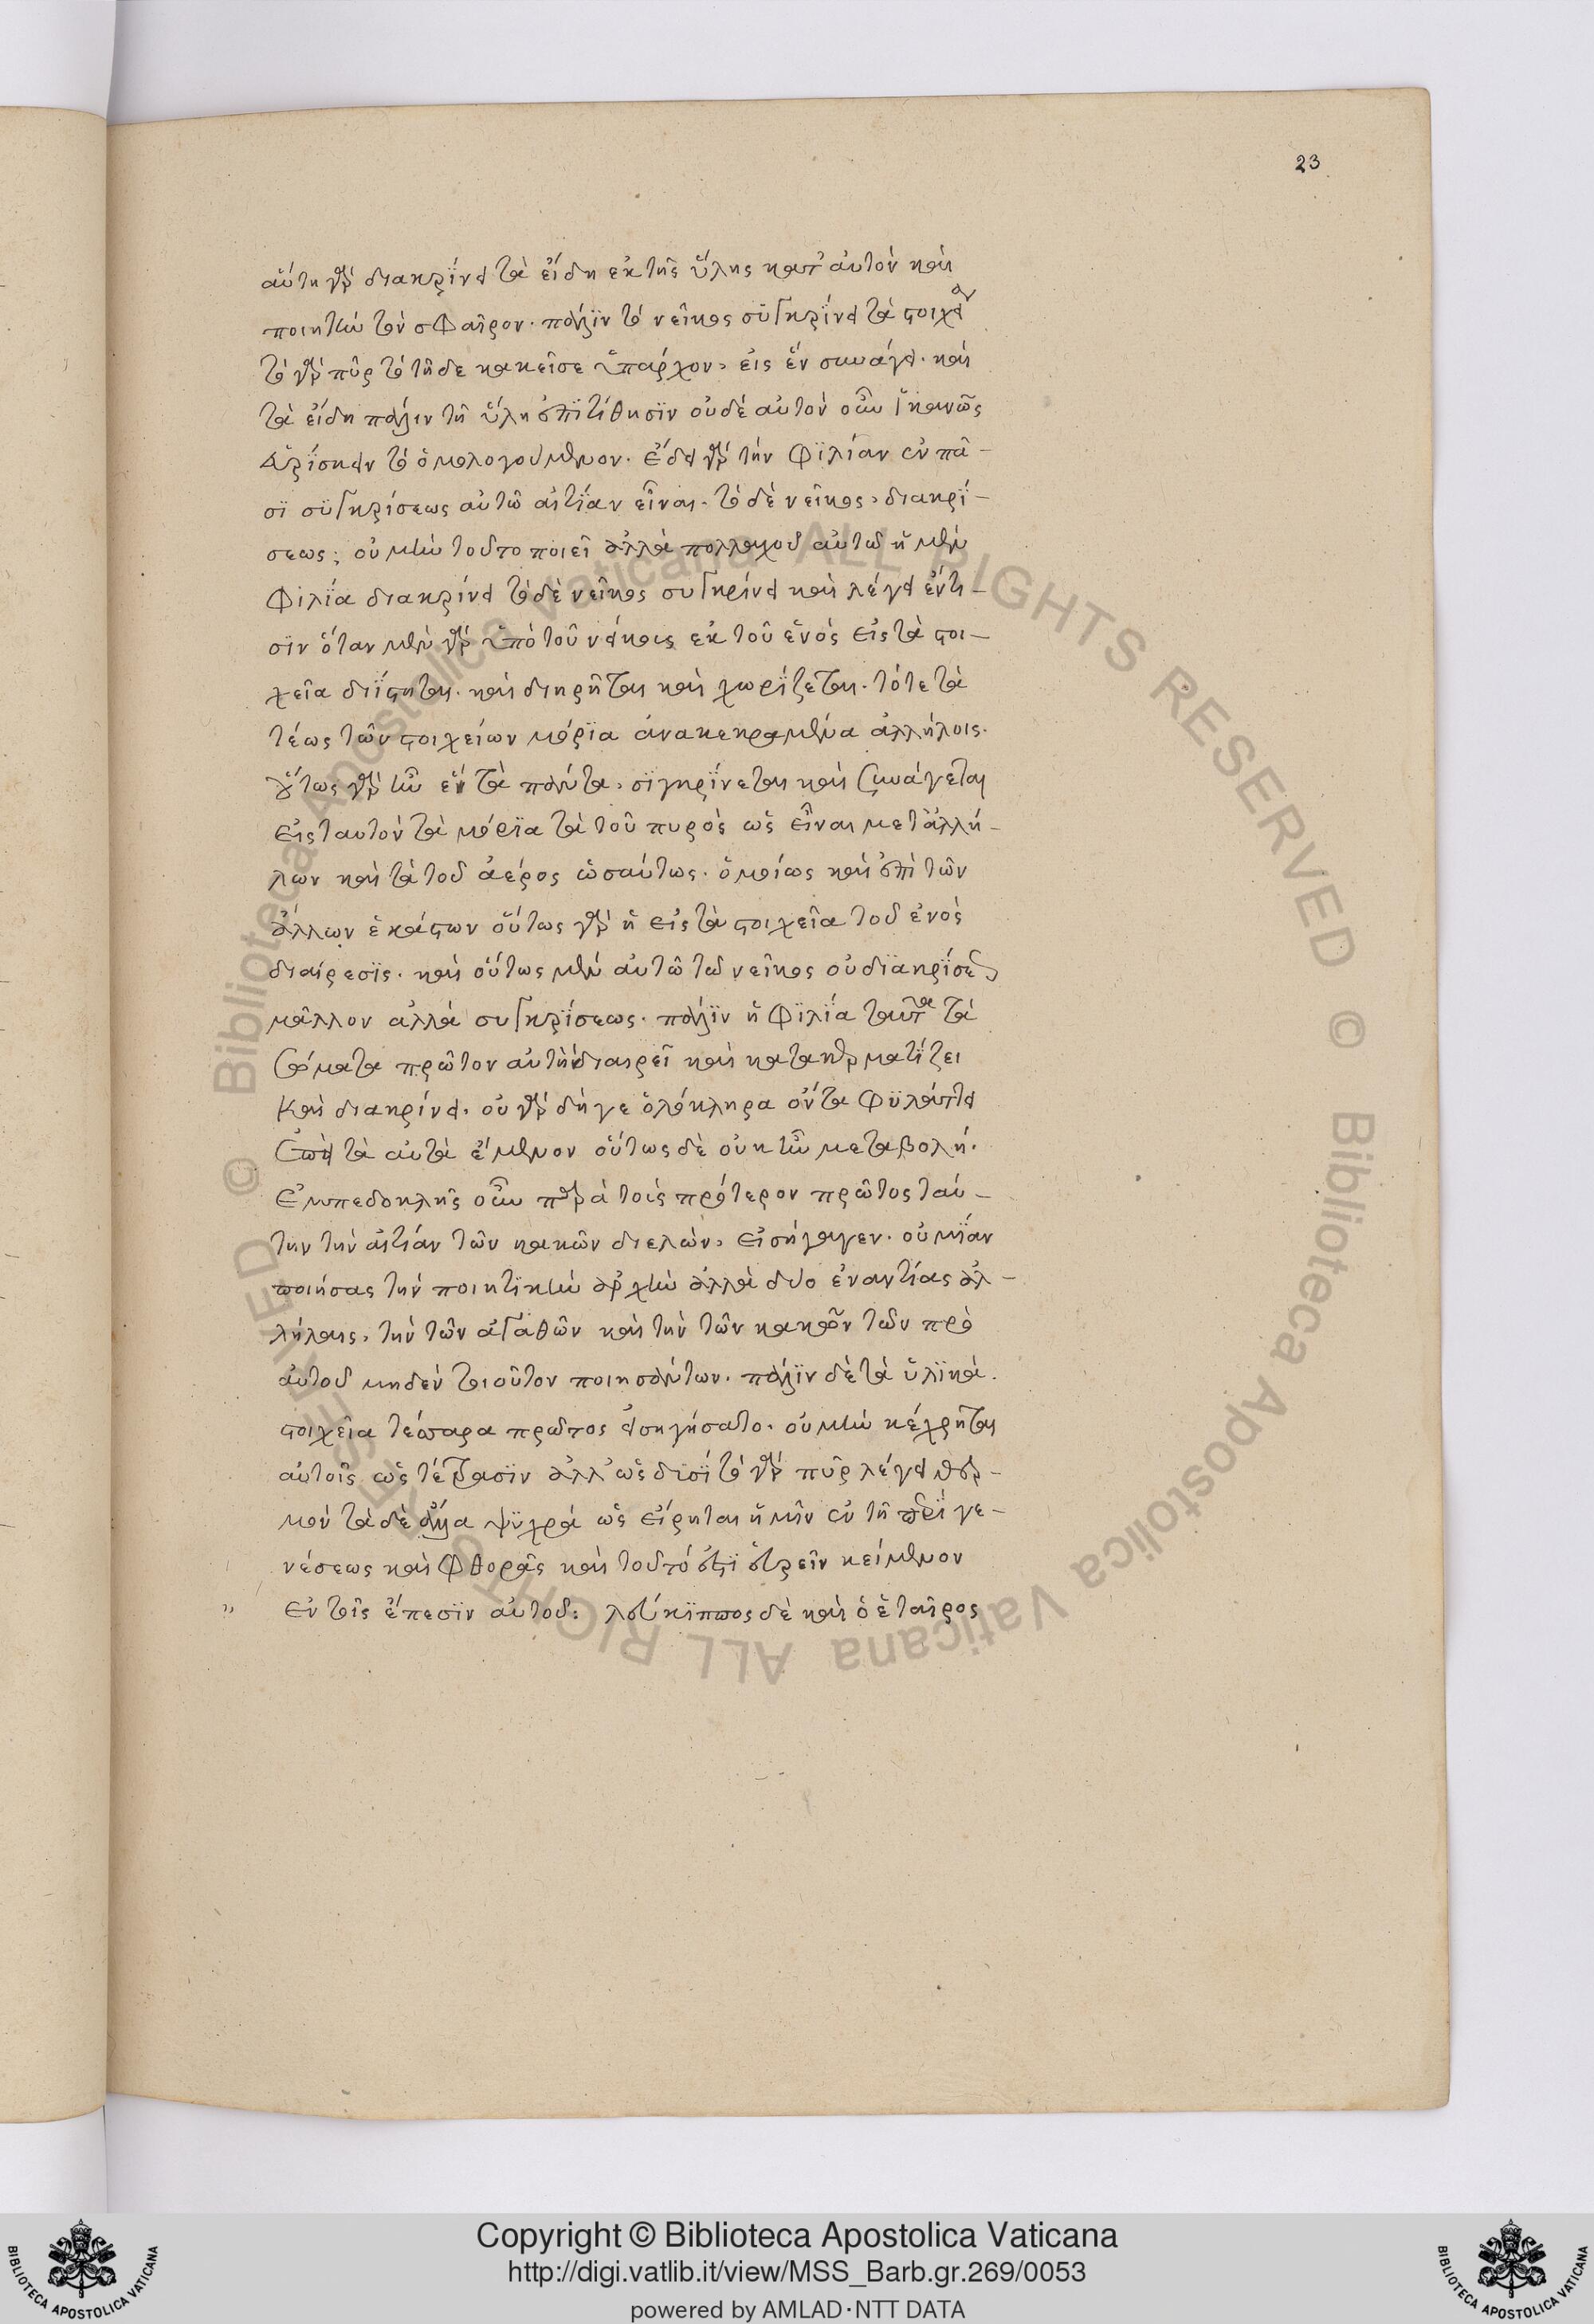 23
αὕτη γὰρ διακρίνει τὰ εἴδη ἐκ τῆς ὕλης κατ' αὐτὸν καὶ
ποιητὴν τὸν σφαῖρον. πάλϊν τὸ νεῖκος συγκρίνει τὰ στοιχεῖα
τὸ γὰρ πῦρ τὸ τῆδε κακεῖσε ὑπάρχον, εἰς ἓν συνάγει. καὶ
τὰ εἴδη πάλιν τῆ ὕλη ἐπϊτίθησϊν οὐδὲ αὐτὸν οὖν ἱκανῶς
εὑρΐσκειν τὸ ὁμολογούμενον. ἔδει γὰρ τὴν φϊλίαν ἐν πᾶ-
σϊ συγκρίσεως αὐτῶ αἰτΐαν εἶναι. τὸ δὲ νεῖκος, διακρΐ-
σεως; οὐ μὴν τοῦτο ποιεῖ ἀλλὰ πολλαχοῦ αὐτῶ ἡ μὲν
φιλΐα διακρίνει τὸ δὲ νεῖκος συγκρίνει καὶ λέγει ἔντι-
σϊν ὅταν μὲν γὰρ ὑπὸ τοῦ νείκους ἐκ τοῦ ἑνὸς εἰς τὰ στοι-
χεῖα διΐστηται. καὶ διηρῆται καὶ χωρΐζεται. τότε τὰ
τέως τῶν στοιχείων μόρϊα ἀνακεκραμένα ἀλλήλοις.
οὕτως γὰρ ἦν ἓν τὰ πάντα, σϊγκρΐνεται καὶ συνάγεται
εἰς ταυτὸν τὰ μόρϊα τὰ τοῦ πυρὸς ὡς εἶναι μετ' ἀλλή-
λων καὶ τὰ τοῦ ἀέρος ὡσαύτως. ὁμοίως καὶ ἐπὶ τῶν
ἄλλων ἑκάστων οὕτως γὰρ ἡ εἰς τὰ στοιχεῖα τοῦ ἑνὸς
διαίρεσϊς. καὶ οὕτως μὲν αὐτῶ τῶ νεῖκος οὐ δϊακρίσεως
μᾶλλον ἀλλὰ συγκρΐσεως. πάλϊν ἡ φϊλΐα ταῦτα τὰ
σώματα πρῶτον αὐτὴ διαιρεῖ καὶ κατακερματΐζει
καὶ διακρίνει. οὐ γὰρ δήγε ὁλόκληρα ὄντα φϋλάττει
ἐπεὶ τὰ αὐτὰ ἔμενον οὕτως δὲ οὐκ ἦν μεταβολή.
Ἐμπεδοκλῆς οὖν παρὰ τοῖς πρότερον πρῶτος ταύ-
την τὴν αἰτίαν τῶν κακῶν διελὼν, εἰσήγαγεν. οὐ μΐαν
ποιήσας τὴν ποιητϊκὴν ἀρχὴν ἀλλὰ δύο ἐναντίας ἀλ-
λήλαις, τὴν τῶν ἀγαθῶν καὶ τὴν τῶν κακῶν τῶν πρὸ
αὐτοῦ μηδὲν τοιοῦτον ποιησάντων. πάλϊν δὲ τὰ ὑλϊκὰ.
στοιχεῖα τέσσαρα πρῶτος εἰσηγήσατο. οὐ μὴν κέχρηται
αὐτοῖς ὡς τέτρασϊν ἀλλ' ὡς δϋσΐ τὸ γὰρ πῦρ λέγει θερ-
μὸν τὰ δὲ ἄλλα ψϋχρὰ ὡς εἴρηται ἡμῖν ἐν τῆ περὶ γε-
νέσεως καὶ φθορᾶς καὶ τοῦτό ἐστϊ εὑρεῖν κείμενον
" ἐν τοῖς ἔπεσϊν αὐτοῦ: λεύκϊππος δὲ καὶ ὁ ἑταῖρος
Copyright © Biblioteca Apostolica Vaticana
http://digi.vatlib.it/view/MSS_Barb.gr.269/0053
powered by AMLAD·NTT DATA